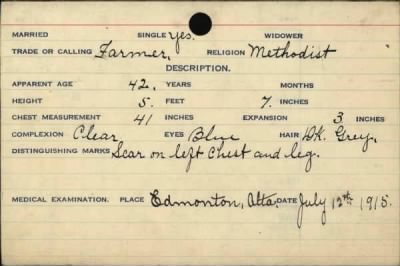 MARRIED SINGLE yes. WIDOWER
TRADE OR CALLING Farmer, RELIGION Methodist
DESCRIPTION.
APPARENT AGE 42, YEARS MONTHS
HEIGHT 5. FEET 7. INCHES
CHEST MEASUREMENT 41 INCHES EXPANSION 3 INCHES
COMPLEXION Clear, EYES Blue HAIR Dk. Grey.
DISTINGUISHING MARKS Scar on left chest and leg.
MEDICAL EXAMINATION. PLACE Edmonton, Alta. DATE July 12th 1915.